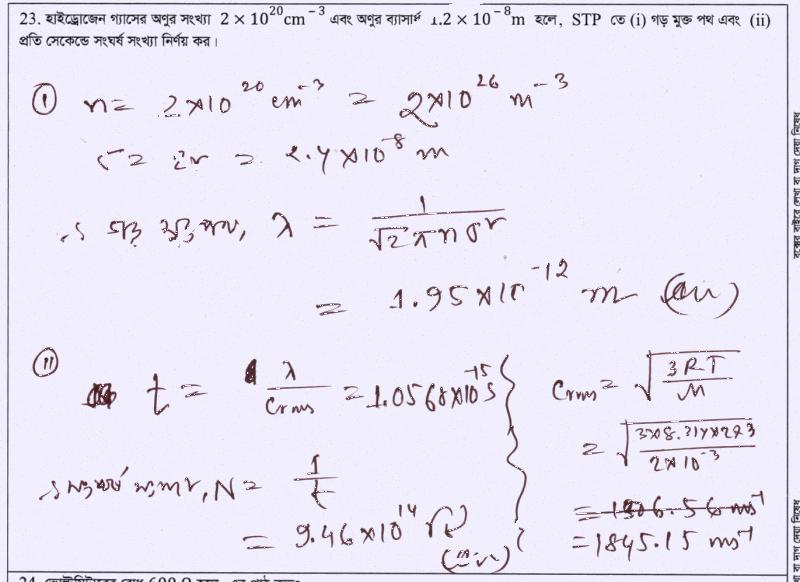 23. হাইড্রোজেন গ্যাসের অণুর সংখ্যা 2 × 10²⁰cm⁻³ এবং অণুর ব্যাসার্ধ 1.2 × 10⁻⁸m হলে, STP তে (i) গড় মুক্ত পথ এবং (ii)
প্রতি সেকেন্ডে সংঘর্ষ সংখ্যা নির্ণয় কর।
বক্সের বাইরে লেখা বা দাগ দেয়া নিষেধ
(i) n = 2×10²⁰ cm⁻³ = 2×10²⁶ m⁻³
σ = 2r = 2.4×10⁻⁸ m
∴ গড় মুক্তপথ, λ = 1/√2πnσ²
= 1.95×10⁻¹² m (Ans)
(ii) t = λ/Crms = 1.0568×10⁻¹⁵ s
Crms = √3RT/M
= √3×8.314×273/2×10⁻³
= 1306.56 ms⁻¹
= 1845.15 ms⁻¹
∴ সংঘর্ষ সংখ্যা, N = 1/t
= 9.46×10¹⁴ টি (Ans)
বক্সের বাইরে লেখা বা দাগ দেয়া নিষেধ